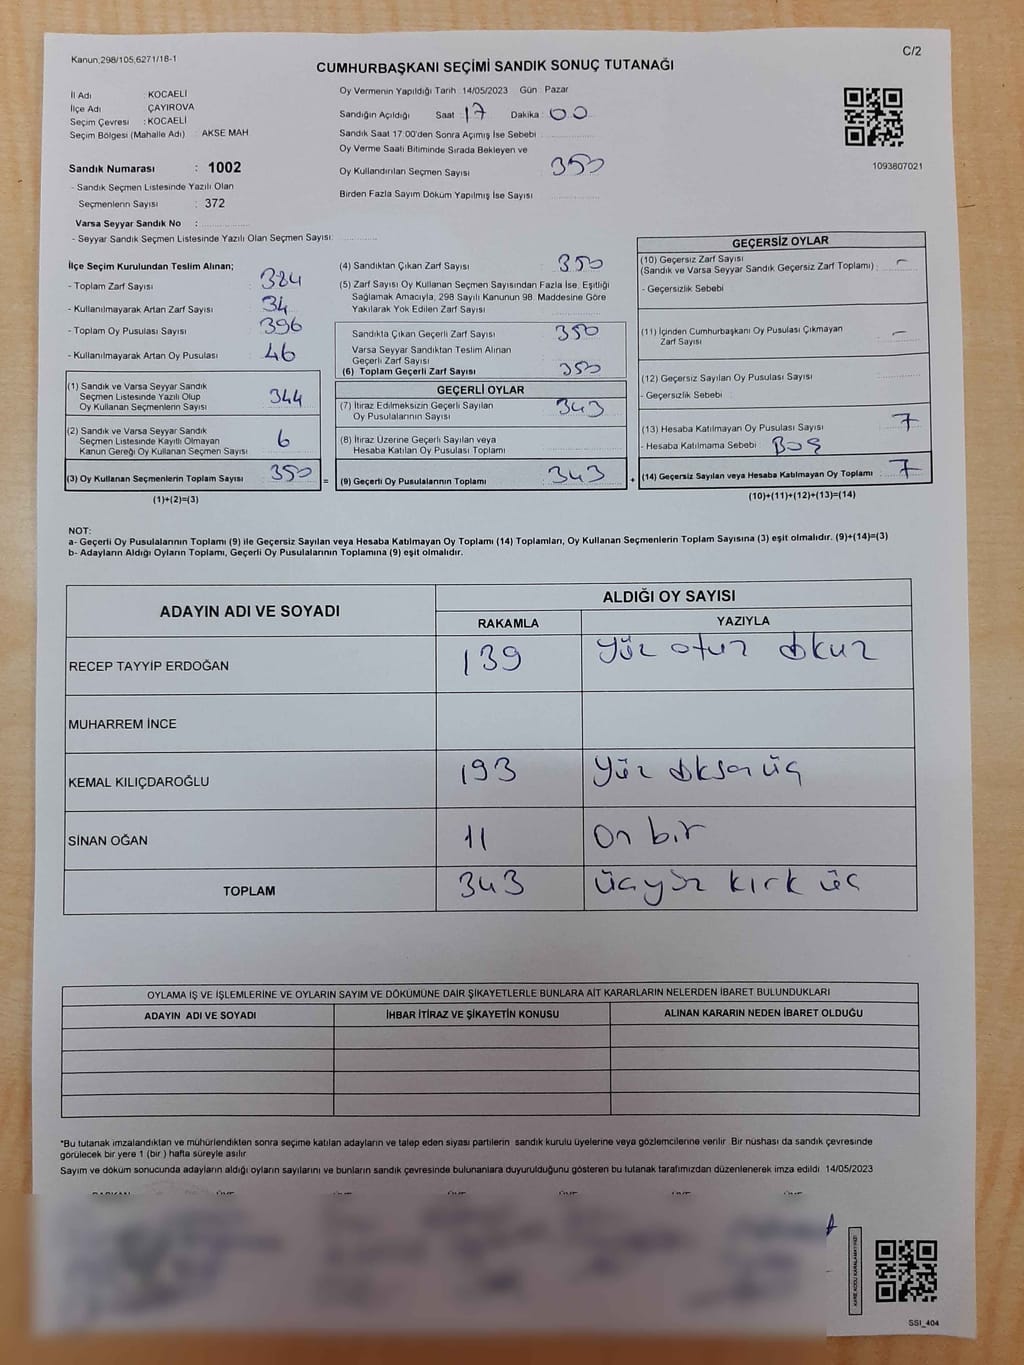 Kanun,298/105,6271/18-1
C/2
CUMHURBAŞKANI SEÇİMİ SANDIK SONUÇ TUTANAĞI
İl Adı KOCAELİ
İlçe Adı ÇAYIROVA
Seçim Çevresi : KOCAELİ
Seçim Bölgesi (Mahalle Adı) : AKSE MAH
Sandık Numarası : 1002
- Sandık Seçmen Listesinde Yazılı Olan
Seçmenlerin Sayısı : 372
Varsa Seyyar Sandık No :
- Seyyar Sandık Seçmen Listesinde Yazılı Olan Seçmen Sayısı:
Oy Vermenin Yapıldığı Tarih 14/05/2023 Gün Pazar
Sandığın Açıldığı Saat 17 Dakika 00
Sandık Saat 17 00'den Sonra Açımış İse Sebebi
Oy Verme Saati Bitiminde Sırada Bekleyen ve
Oy Kullandırılan Seçmen Sayısı 350
Birden Fazla Sayım Döküm Yapılmış İse Sayısı
1093807021
İlçe Seçim Kurulundan Teslim Alınan;
- Toplam Zarf Sayısı 384
- Kullanılmayarak Artan Zarf Sayısı 34
- Toplam Oy Pusulası Sayısı 396
- Kullanılmayarak Artan Oy Pusulası 46
(1) Sandık ve Varsa Seyyar Sandık
Seçmen Listesinde Yazılı Olup
Oy Kullanan Seçmenlerin Sayısı 344
(2) Sandık ve Varsa Seyyar Sandık
Seçmen Listesinde Kayıtlı Olmayan
Kanun Gereği Oy Kullanan Seçmen Sayısı 6
(3) Oy Kullanan Seçmenlerin Toplam Sayısı 350 =
(1)+(2)=(3)
(4) Sandıktan Çıkan Zarf Sayısı 350
(5) Zarf Sayısı Oy Kullanan Seçmen Sayısından Fazla İse, Eşitliği
Sağlamak Amacıyla, 298 Sayılı Kanunun 98. Maddesine Göre
Yakılarak Yok Edilen Zarf Sayısı
Sandıkta Çıkan Geçerli Zarf Sayısı 350
Varsa Seyyar Sandıktan Teslim Alınan
Geçerli Zarf Sayısı
(6) Toplam Geçerli Zarf Sayısı 350
GEÇERLİ OYLAR
(7) İtiraz Edilmeksizin Geçerli Sayılan
Oy Pusulalarının Sayısı 343
(8) İtiraz Üzerine Geçerli Sayılan veya
Hesaba Katılan Oy Pusulası Toplamı
(9) Geçerli Oy Pusulalarının Toplamı 343 +
GEÇERSİZ OYLAR
(10) Geçersiz Zarf Sayısı
(Sandık ve Varsa Seyyar Sandık Geçersiz Zarf Toplamı) : -
- Geçersizlik Sebebi
(11) İçinden Cumhurbaşkanı Oy Pusulası Çıkmayan
Zarf Sayısı -
(12) Geçersiz Sayılan Oy Pusulası Sayısı
- Geçersizlik Sebebi :
(13) Hesaba Katılmayan Oy Pusulası Sayısı 7
- Hesaba Katılmama Sebebi BOŞ
(14) Geçersiz Sayılan veya Hesaba Katılmayan Oy Toplamı 7
(10)+(11)+(12)+(13)=(14)
NOT:
a- Geçerli Oy Pusulalarının Toplamı (9) ile Geçersiz Sayılan veya Hesaba Katılmayan Oy Toplamı (14) Toplamları, Oy Kullanan Seçmenlerin Toplam Sayısına (3) eşit olmalıdır. (9)+(14)=(3)
b- Adayların Aldığı Oyların Toplamı, Geçerli Oy Pusulalarının Toplamına (9) eşit olmalıdır.
ADAYIN ADI VE SOYADI
ALDIĞI OY SAYISI
RAKAMLA YAZIYLA
RECEP TAYYİP ERDOĞAN 139 Yüz otuz dokuz
MUHARREM İNCE
KEMAL KILIÇDAROĞLU 193 Yüz doksan üç
SİNAN OĞAN 11 On bir
TOPLAM 343 üçyüz kırk üç
OYLAMA İŞ VE İŞLEMLERİNE VE OYLARIN SAYIM VE DÖKÜMÜNE DAİR ŞİKAYETLERLE BUNLARA AİT KARARLARIN NELERDEN İBARET BULUNDUKLARI
ADAYIN ADI VE SOYADI İHBAR İTİRAZ VE ŞİKAYETİN KONUSU ALINAN KARARIN NEDEN İBARET OLDUĞU
*Bu tutanak imzalandıktan ve mühürlendikten sonra seçime katılan adayların ve talep eden siyasi partilerin sandık kurulu üyelerine veya gözlemcilerine verilir Bir nüshası da sandık çevresinde
görülecek bir yere 1 (bir ) hafta süreyle asılır
Sayım ve döküm sonucunda adayların aldığı oyların sayılarını ve bunların sandık çevresinde bulunanlara duyurulduğunu gösteren bu tutanak tarafımızdan düzenlenerek imza edildi 14/05/2023
KARE KODU KARALAMAYINIZ!
SSI_404